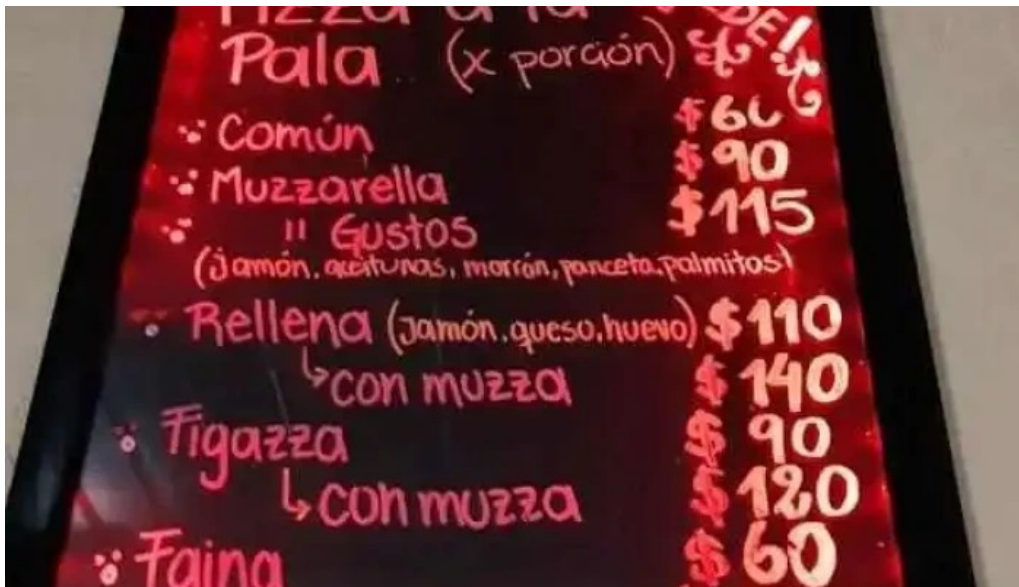 Pizza a la
DE!
Pala (x porción)
Común $60
Muzzarella $90
" Gustos $115
(jamón, aceitunas, morrón, panceta, palmitos)
Rellena (jamón, queso, huevo) $110
↳ con muzza $140
Figazza $90
↳ con muzza $120
Faina $60